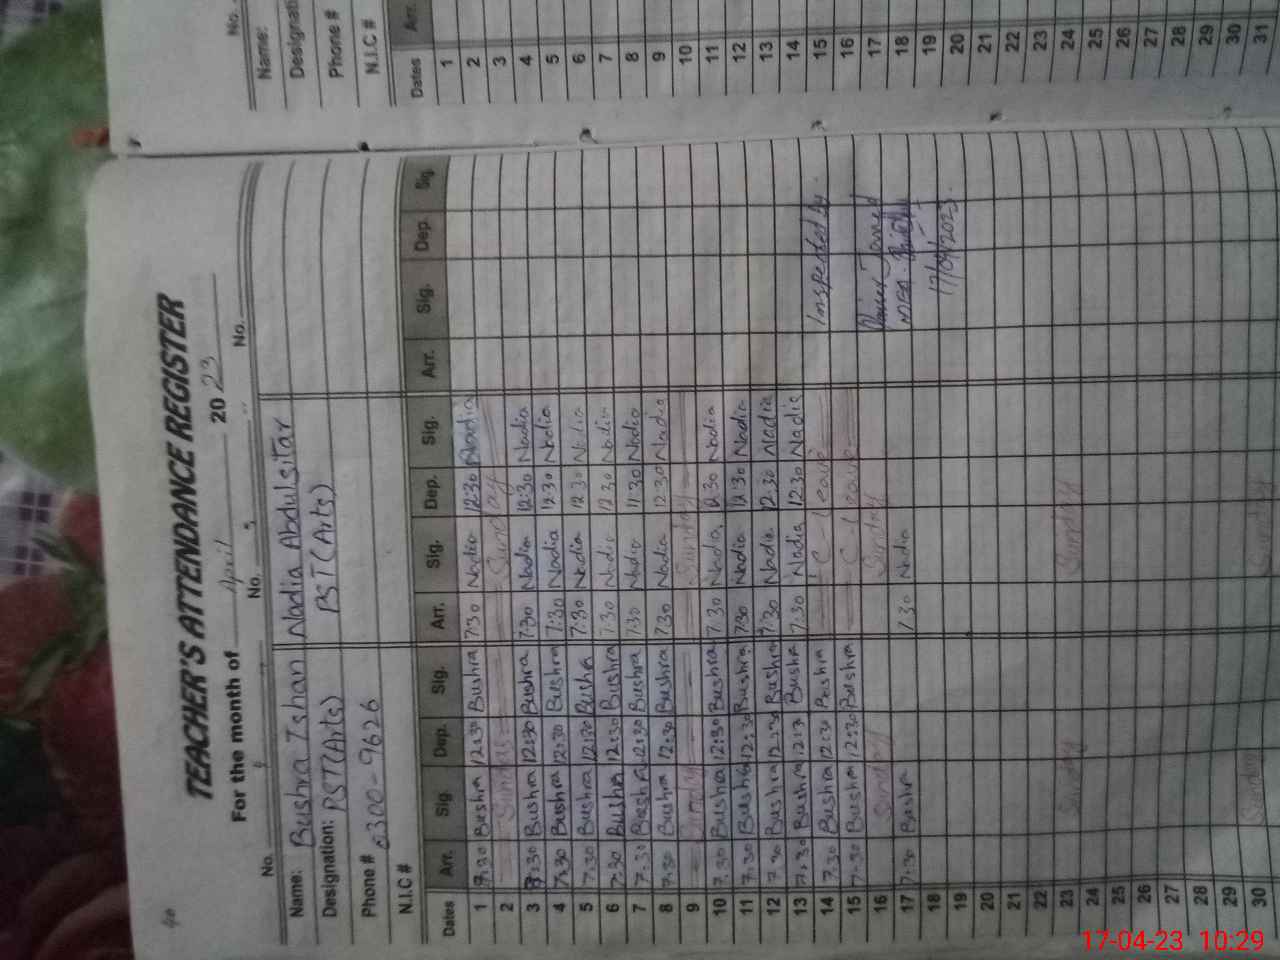 TEACHER'S ATTENDANCE REGISTER
For the month of April 20 23
No. No. No.
Name: Bushra Ishan Nadia Abdulsitar
Designation: PST(Arts) PST(Arts)
Phone # 0300-9626
N.I.C #
Dates Arr. Sig. Dep. Sig. Arr. Sig. Dep. Sig. Arr. Sig. Dep. Sig.
1 7:30 Bushra 12:30 Bushra 7:30 Nadia 12:30 Nadia
2 Sunday Sunday
3 7:30 Bushra 12:30 Bushra 7:30 Nadia 12:30 Nadia
4 7:30 Bushra 12:30 Bushra 7:30 Nadia 12:30 Nadia
5 7:30 Bushra 12:30 Bushra 7:30 Nadia 12:30 Nadia
6 7:30 Bushra 12:30 Bushra 7:30 Nadia 12:30 Nadia
7 7:30 Bushra 12:30 Bushra 7:30 Nadia 11:30 Nadia
8 7:30 Bushra 12:30 Bushra 7:30 Nadia 12:30 Nadia
9 Sunday Sunday
10 7:30 Bushra 12:30 Bushra 7:30 Nadia 12:30 Nadia
11 7:30 Bushra 12:30 Bushra 7:30 Nadia 12:30 Nadia
12 7:30 Bushra 12:30 Bushra 7:30 Nadia 12:30 Nadia
13 7:30 Bushra 12:30 Bushra 7:30 Nadia 12:30 Nadia
14 7:30 Bushra 12:30 Bushra C - leave Inspected by
15 7:30 Bushra 12:30 Bushra C - leave
16 Sunday Sunday
17 7:30 Bushra 7:30 Nadia MEA
18 17/04/2023
19
20
21
22
23 Sunday Sunday
24
25
26
27
28
29
30 Sunday Sunday
No.
Name:
Designati
Phone #
N.I.C #
Dates Arr.
1
2
3
4
5
6
7
8
9
10
11
12
13
14
15
16
17
18
19
20
21
22
23
24
25
26
27
28
29
30
31
17-04-23 10:29